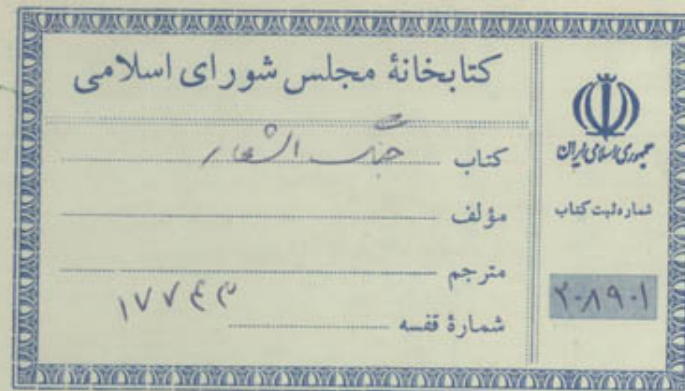 کتابخانهٔ مجلس شورای اسلامی
کتاب جنگ اشعار
مؤلف
مترجم
شمارهٔ قفسه ۱۷۷۴۳
جمهوری اسلامی ایران
شماره ثبت کتاب
۲۰۸۹۰۱